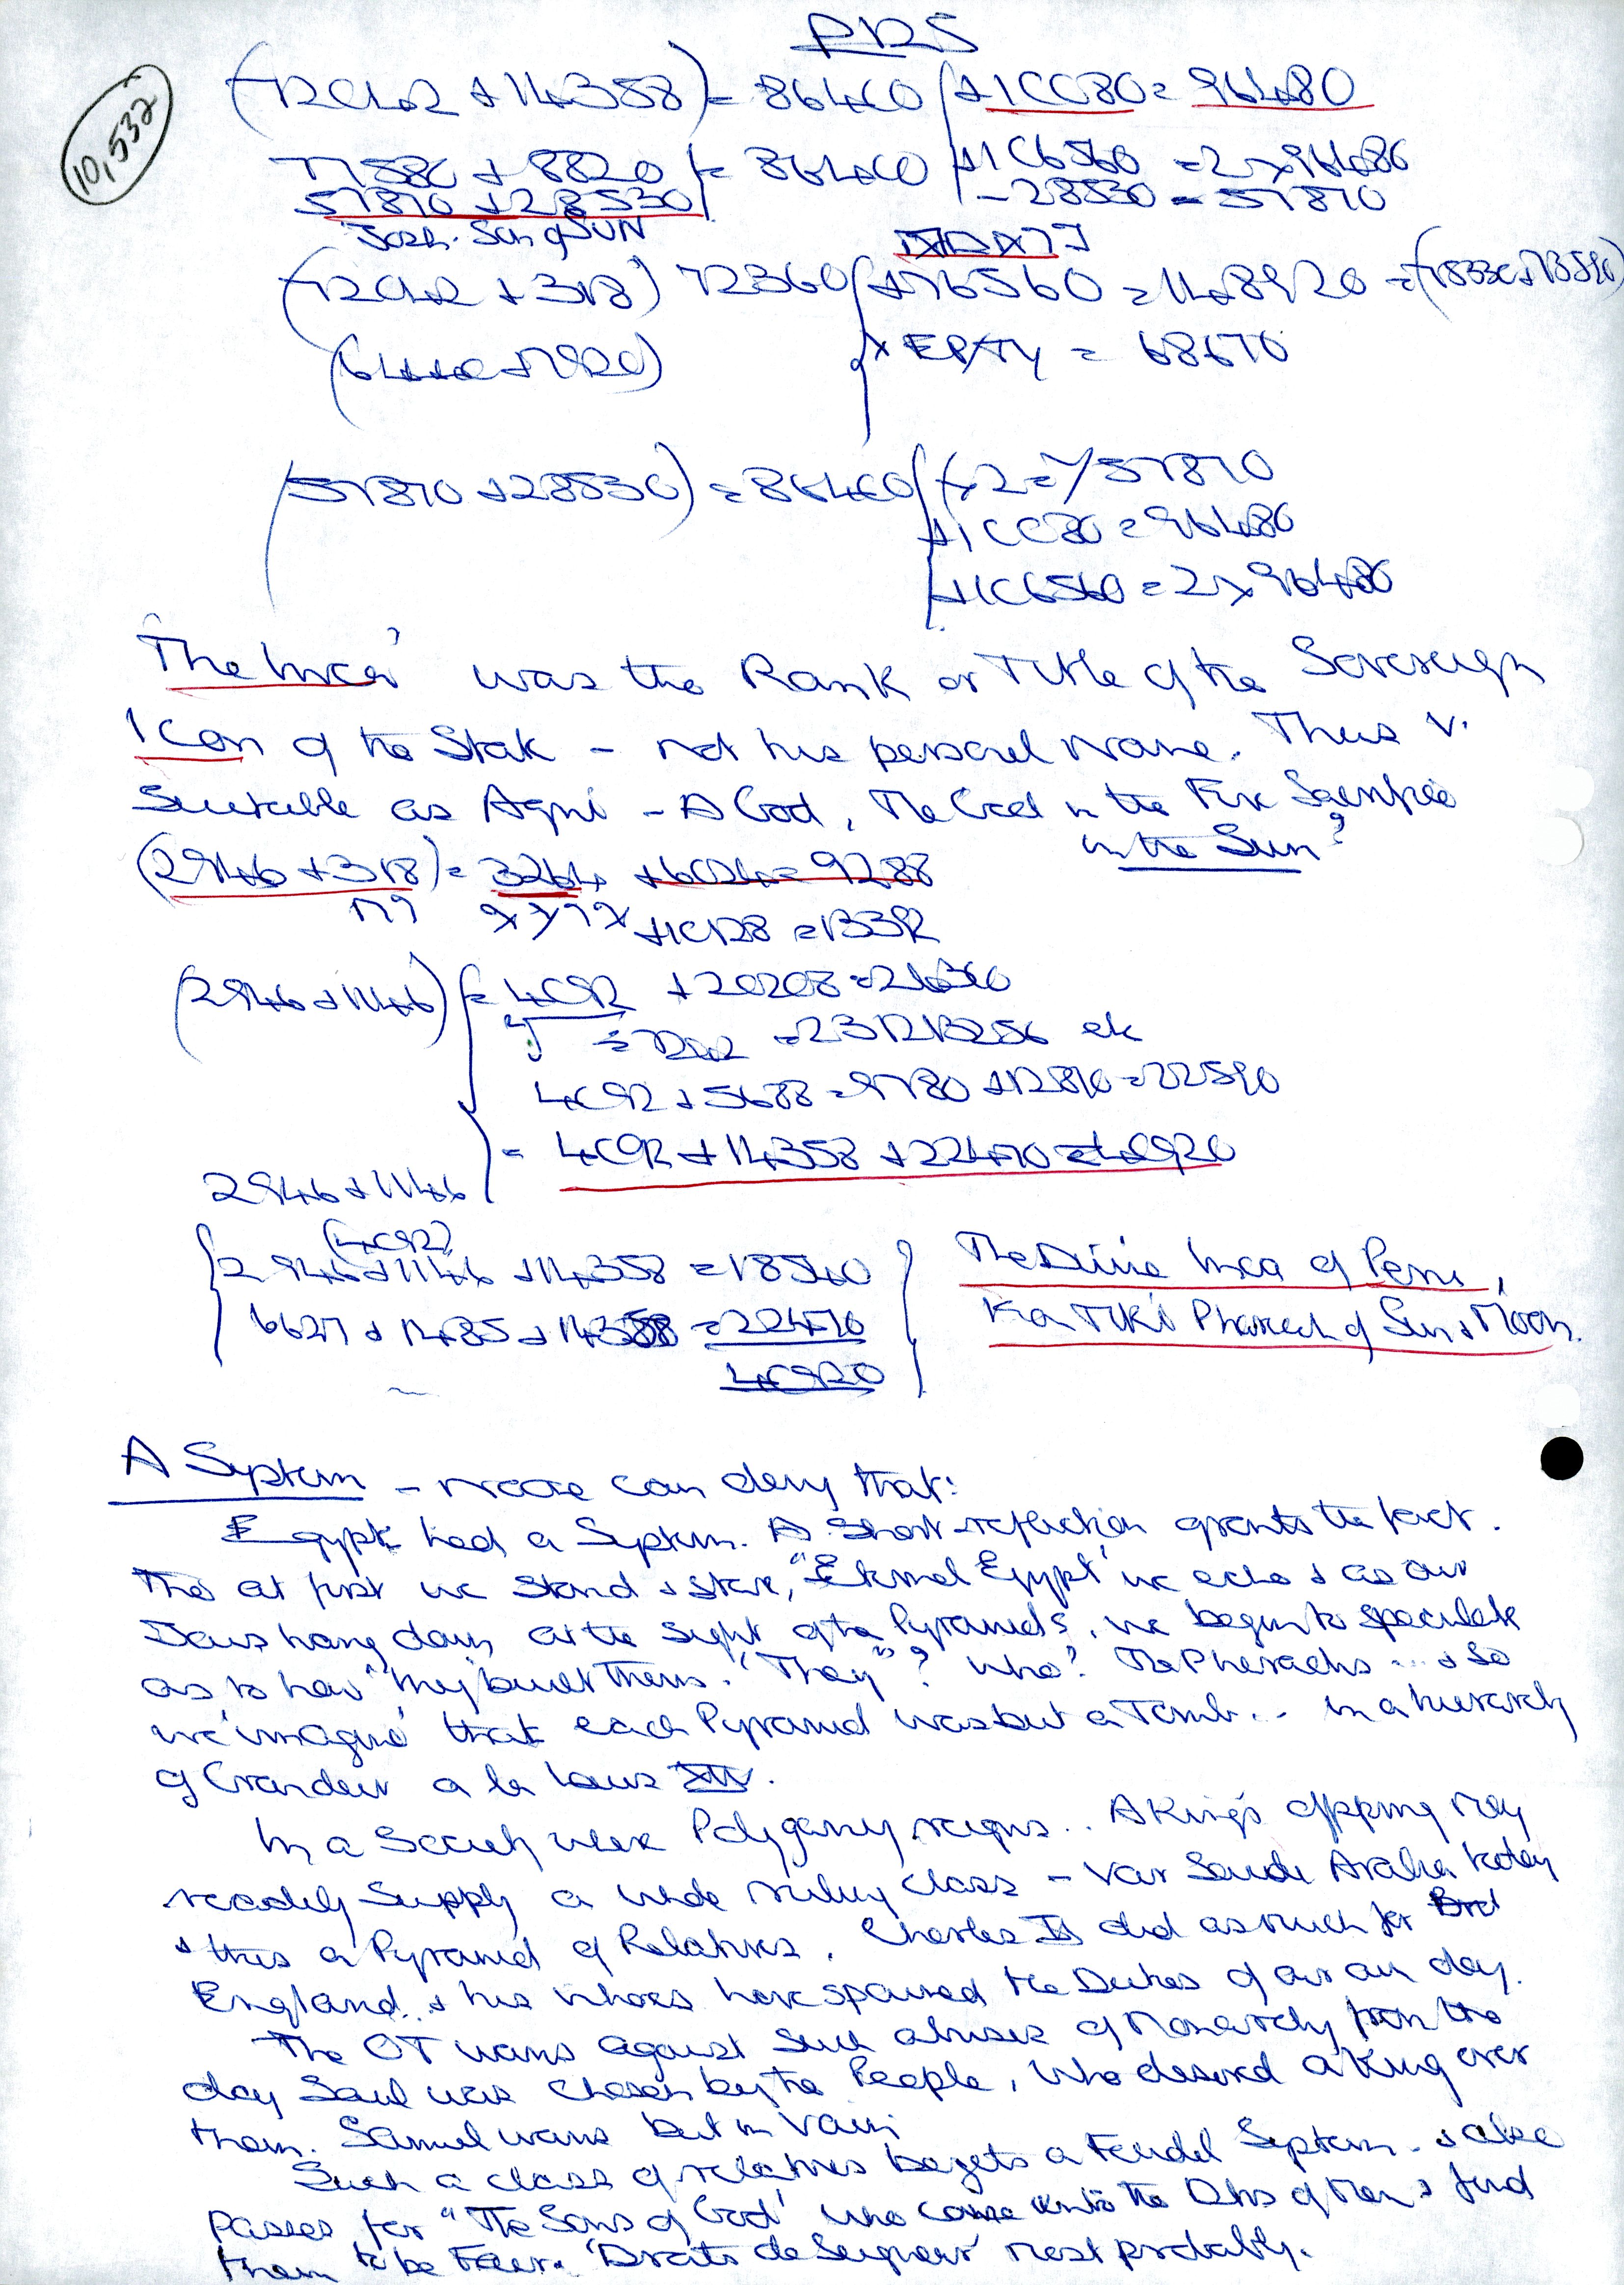 P125
10,532
(72042 + 14358) = 86400 + 10080 = 96480
77580 + 8820 = 86400 + 106560 = 2 x 96480
57870 + 28530 - 28530 = 57870
Son of SUN
(72042 + 318) 72360 + 76560 = 148920 =
= 68670
(57870 + 28530) = 86400
+ 10080 = 96480
+ 106560 = 2 x 96480
The Inca' was the Rank or Title of the Sovereign
Icon of the State - not his personal Name. Thus V.
Suitable as Agni - A God, The God in the Fire Sacrifice
in the Sun?
(2946 + 318) = 3264 + 6024 = 9288
+ 10128 = 13392
(2946 + 1146) = 4092 + 20208 =
4092 + 5688 = 9780 + 12810 = 22590
= 4092 + 14358 + 22470 = 40920
2946 + 1146
(4092)
2946 + 1146 + 14358 = 18450
6627 + 1485 + 14358 = 22470
40920
The Divine Inca of Peru,
Kon Tiki Pharaoh of Sun & Moon.
A System - no one can deny that:
Egypt had a System. A short reflection grants the fact.
Tho at first we stand & stare, "Eternal Egypt' we echo & as our
Jaws hang down at the sight of the Pyramids, we begin to speculate
as to how "they' built them. "They"? Who? The Pharaohs ... & so
we 'imagine' that each Pyramid was but a Tomb... in a hierarchy
of Grandeur a la Louis XIV.
In a Society where Polygamy reigns.. A King's offspring may
readily supply a whole ruling class - Saudi Arabia today
& thus a Pyramid of Relatives. Charles II did as much for
England. & his whores have spawned the Dukes of our own day.
The OT warns against such abuses of Monarchy from the
day Saul was chosen by the People, who desired a King over
them. Samuel warns but in vain
Such a class of relatives begets a Feudal System. & also
passes for "The Sons of God' who came unto the Dtrs of Men & find
them to be Fair. 'Droits de Seigneur' most probably.